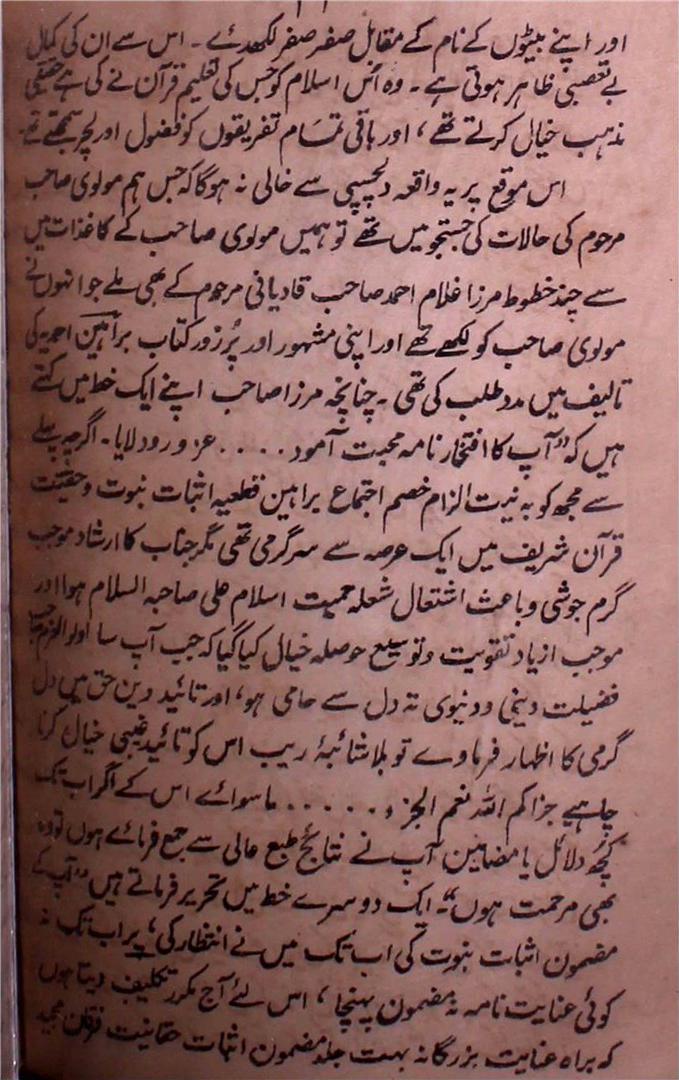 اور اپنے بیٹوں کے نام کے مقابل صفر صفر لکھدئے ۔ اس سے ان کی کمال
بے تعصبی ظاہر ہوتی ہے ۔ وہ اُس اسلام کو جس کی تعلیم قرآن نے کی ہے حقیقی
مذہب خیال کرتے تھے ، اور باقی تمام تفریقوں کو فضول اور لچر سمجھتے تھے
اس موقع پر یہ واقعہ دلچسپی سے خالی نہ ہوگا کہ جس ہم مولوی صاحب
مرحوم کی حالات کی جستجو میں تھے تو ہمیں مولوی صاحب کے کاغذات میں
سے چند خطوط مرزا غلام احمد صاحب قادیانی مرحوم کے بھی ملے جو انہوں نے
مولوی صاحب کو لکھے تھے اور اپنی مشہور اور پُر زور کتاب براہین احمدیہ کی
تالیف میں مدد طلب کی تھی ۔ چنانچہ مرزا صاحب اپنے ایک خط میں لکھتے
ہیں کہ ”آپ کا افتخار نامہ محبت آمود . . . . عز ورود لایا ۔ اگرچہ پہلے
سے مجھ کو بہ نیت الزام خصم اجتماع براہین قطعیہ اثبات نبوت و حقیت
قرآن شریف میں ایک عرصہ سے سرگرمی تھی مگر جناب کا ارشاد موجب
گرم جوشی و باعث اشتعال شعلہ حمیت اسلام علی صاحبہ السلام ہوا اور
موجب ازیاد تقویت و توسیع حوصلہ خیال کیا گیا کہ جب آپ سا اولوالعزم صاحب
فضیلت دینی و دنیوی تہ دل سے حامی ہو ، اور تائید دین حق میں دل
گرمی کا اظہار فرماوے تو بلا شائبۂ ریب اس کو تائید غیبی خیال کرنا
چاہیے جزاکم اللہ نعم الجزء . . . . . . ماسوائے اس کے اگر اب تک
کچھ دلائل یا مضامین آپ نے نتائج طبع عالی سے جمع فرمائے ہوں تو وہ
بھی مرحمت ہوں“ ۔ ایک دوسرے خط میں تحریر فرماتے ہیں ”آپ کے
مضمون اثبات نبوت کی اب تک میں نے انتظار کی ، پر اب تک نہ
کوئی عنایت نامہ نہ مضمون پہنچا ، اس لئے آج مکرر تکلیف دیتا ہوں
کہ براہ عنایت بزرگانہ بہت جلد مضمون اثبات حقانیت فرقان مجید